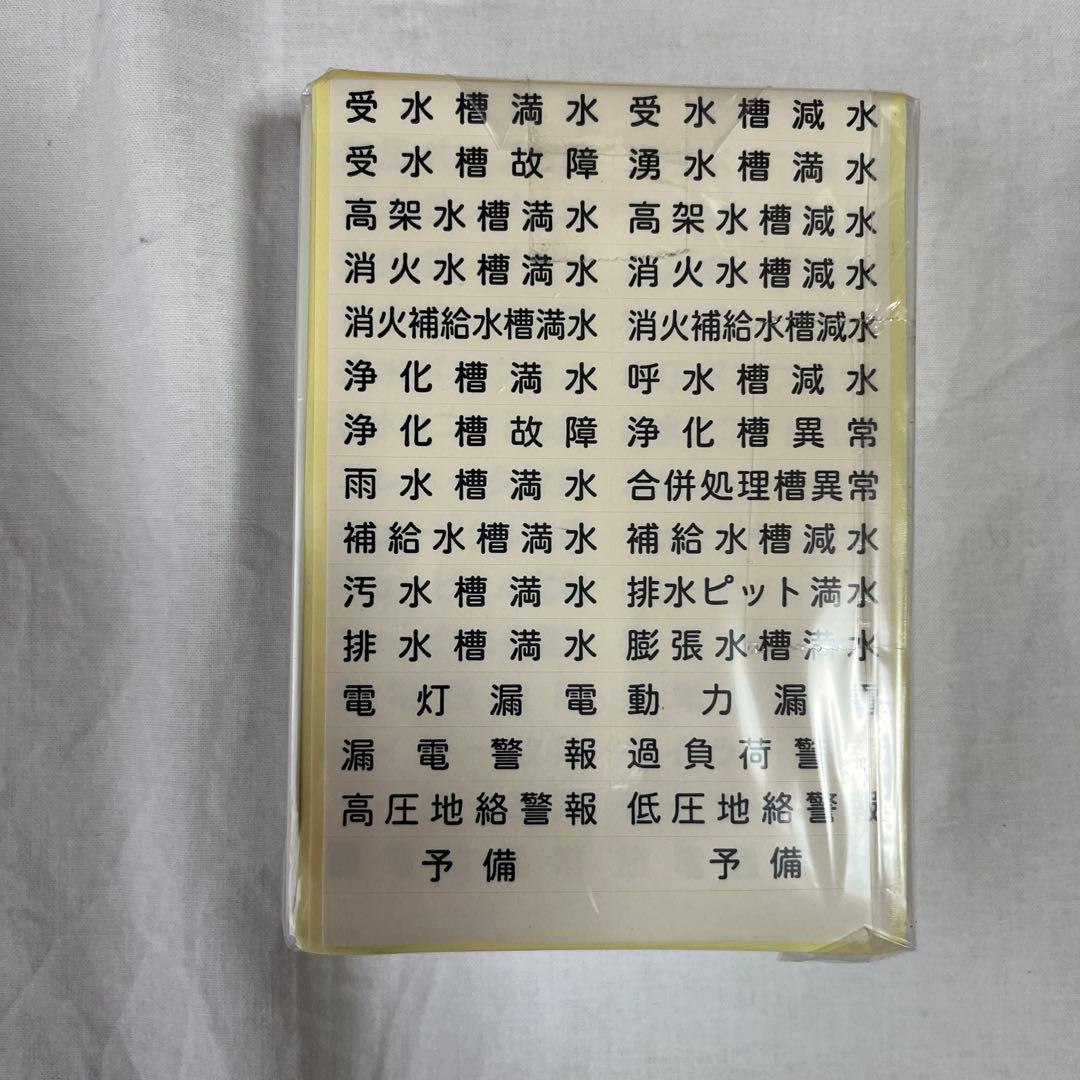 受水槽満水 受水槽減水
受水槽故障 湧水槽満水
高架水槽満水 高架水槽減水
消火水槽満水 消火水槽減水
消火補給水槽満水 消火補給水槽減水
浄化槽満水 呼水槽減水
浄化槽故障 浄化槽異常
雨水槽満水 合併処理槽異常
補給水槽満水 補給水槽減水
汚水槽満水 排水ピット満水
排水槽満水 膨張水槽満水
電灯漏電 動力漏電
漏電警報 過負荷警
高圧地絡警報 低圧地絡警報
予備 予備